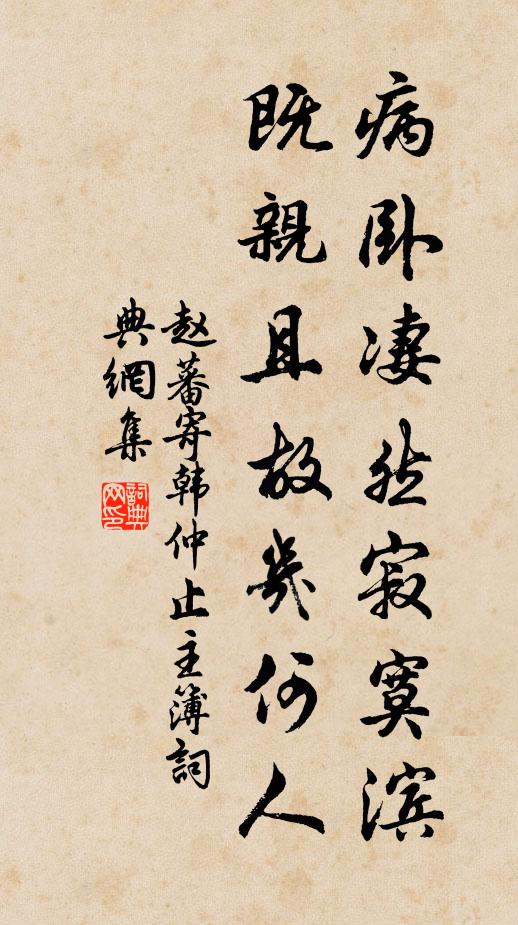 病卧凄然寂寞滨
既親且故幾何人
赵蕃寄韩仲止主簿詞
典網集
詞典网印